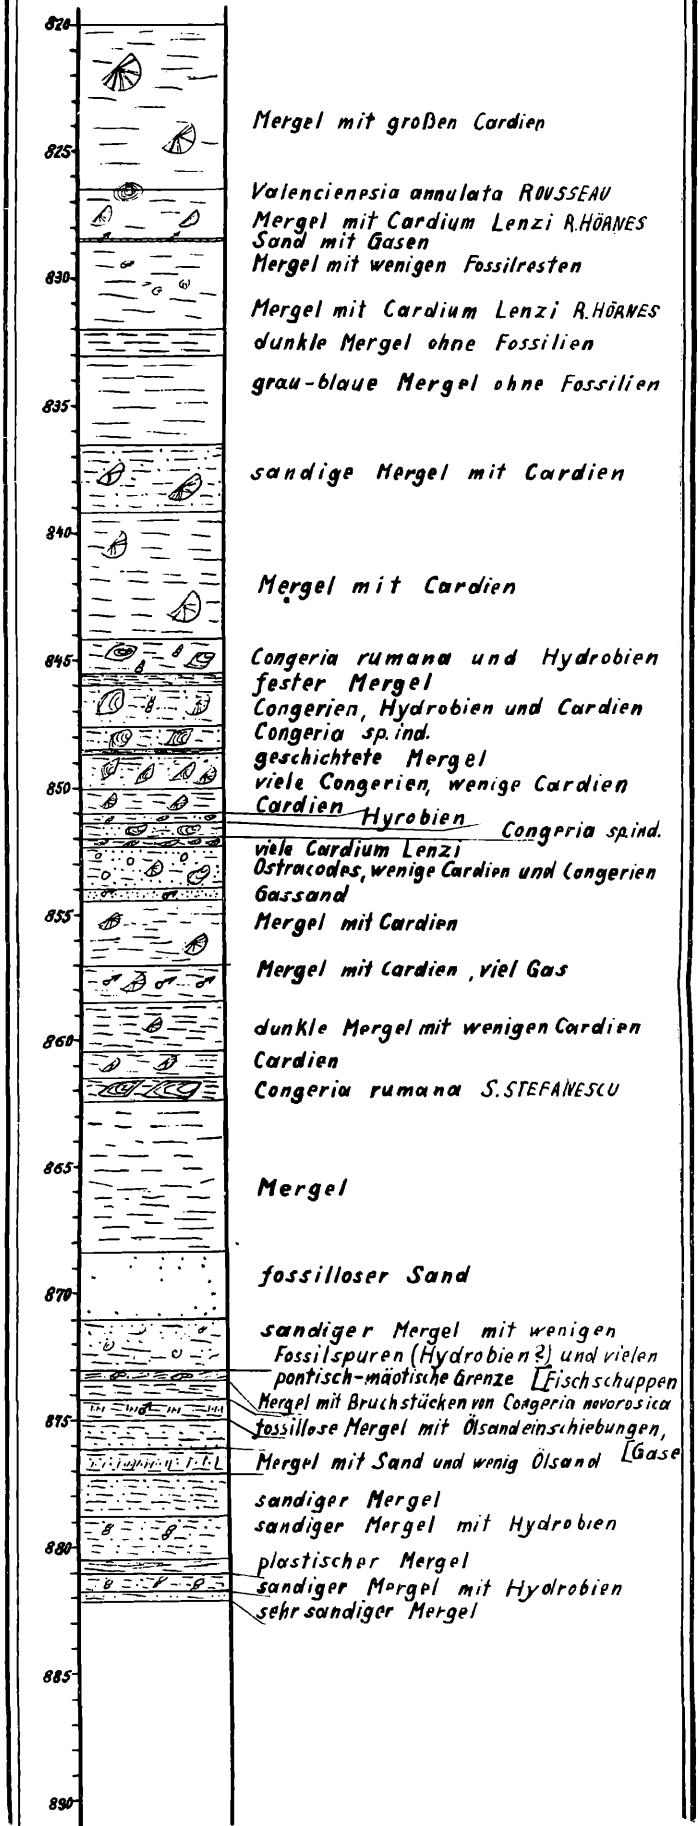 820
Mergel mit großen Cardien
825
Valencienesia annulata ROUSSEAU
Mergel mit Cardium Lenzi R.HÖRNES
Sand mit Gasen
Mergel mit wenigen Fossilresten
830
Mergel mit Cardium Lenzi R.HÖRNES
dunkle Mergel ohne Fossilien
grau-blaue Mergel ohne Fossilien
835
sandige Mergel mit Cardien
840
Mergel mit Cardien
845
Congeria rumana und Hydrobien
fester Mergel
Congerien, Hydrobien und Cardien
Congeria sp.ind.
geschichtete Mergel
viele Congerien, wenige Cardien
850
Cardien
Hyrobien
Congeria sp.ind.
viele Cardium Lenzi
Ostracodes, wenige Cardien und Congerien
Gassand
855
Mergel mit Cardien
Mergel mit Cardien, viel Gas
dunkle Mergel mit wenigen Cardien
860
Cardien
Congeria rumana S.STEFANESCU
865
Mergel
870
fossilloser Sand
sandiger Mergel mit wenigen
Fossilspuren (Hydrobien?) und vielen
pontisch-mäotische Grenze [Fischschuppen
Mergel mit Bruchstücken von Congeria novorosica
875
fossillose Mergel mit Ölsandeinschiebungen,
[Gase
Mergel mit Sand und wenig Ölsand
sandiger Mergel
sandiger Mergel mit Hydrobien
880
plastischer Mergel
sandiger Mergel mit Hydrobien
sehr sandiger Mergel
885
890